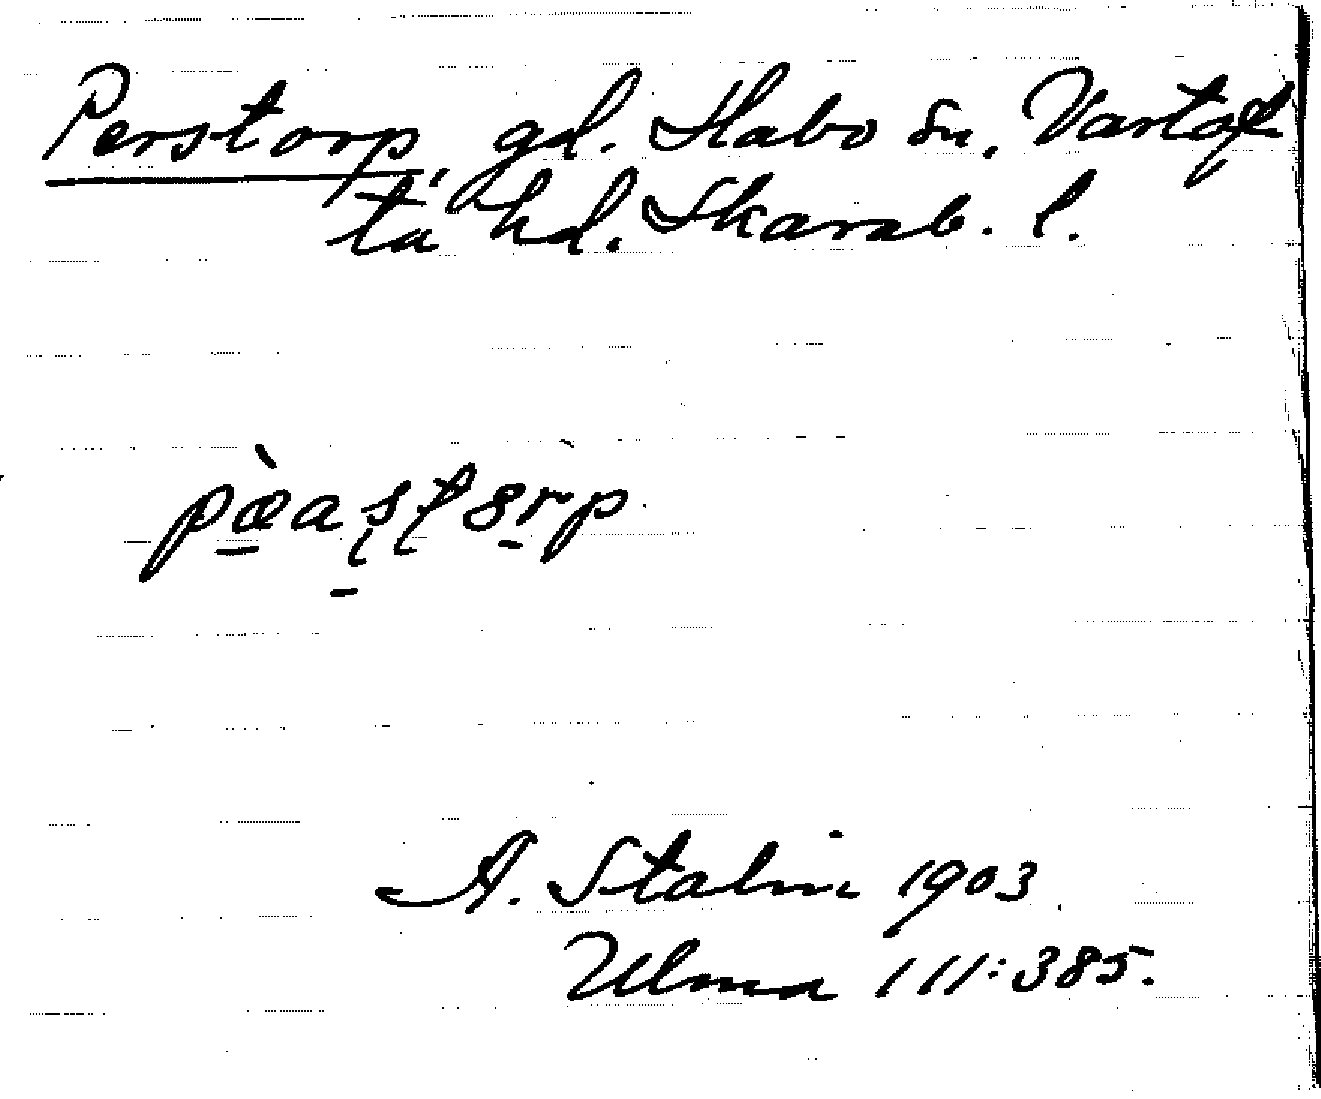 Perstorp, gd. Habo sn, Vartof
ta hd. Skarab. l.
pæ̀aşţ8rp
A. Stalin 1903
Ulma 111:385.